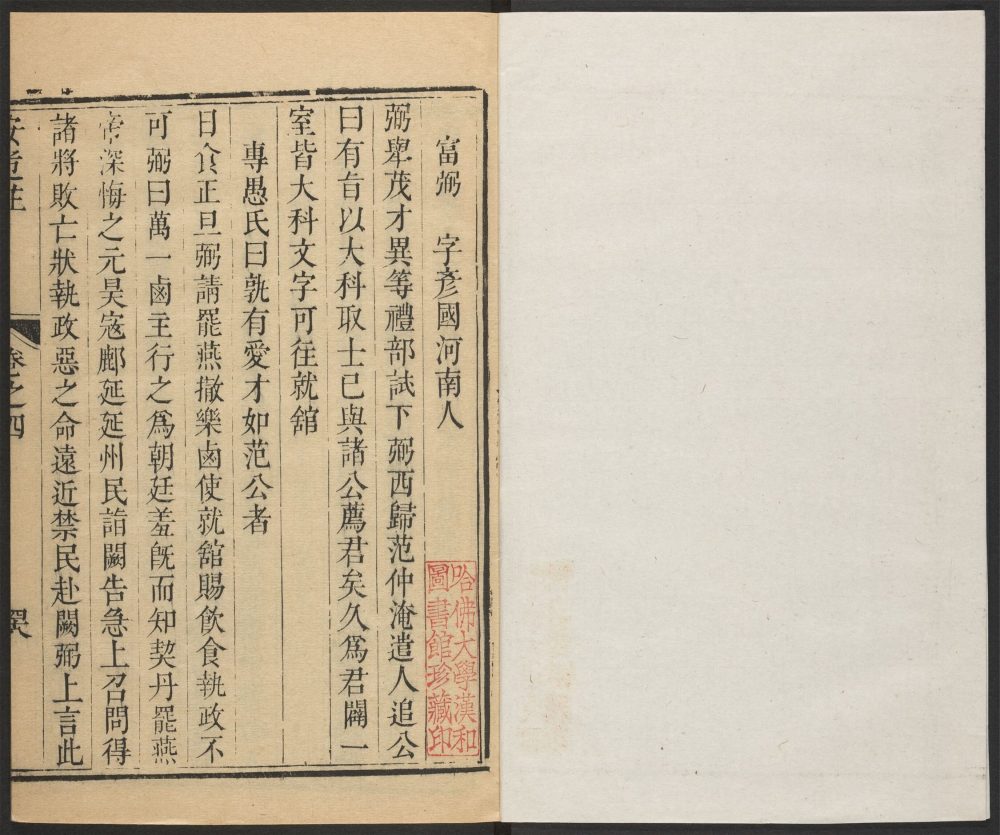 富弼　字彥國河南人
弼舉茂才異等禮部試下弼西歸范仲淹遣人追公
曰有旨以大科取士已與諸公薦君矣久爲君闢一
室皆大科文字可往就舘
專愚氏曰孰有愛才如范公者
日食正旦弼請罷燕撤樂鹵使就舘賜飲食執政不
可弼曰萬一鹵主行之爲朝廷羞旣而知契丹罷燕
帝深悔之元昊寇鄜延延州民詣闕告急上召問得
諸將敗亡狀執政惡之命遠近禁民赴闕弼上言此
卷之四
哈佛大學漢和
圖書館珍藏印